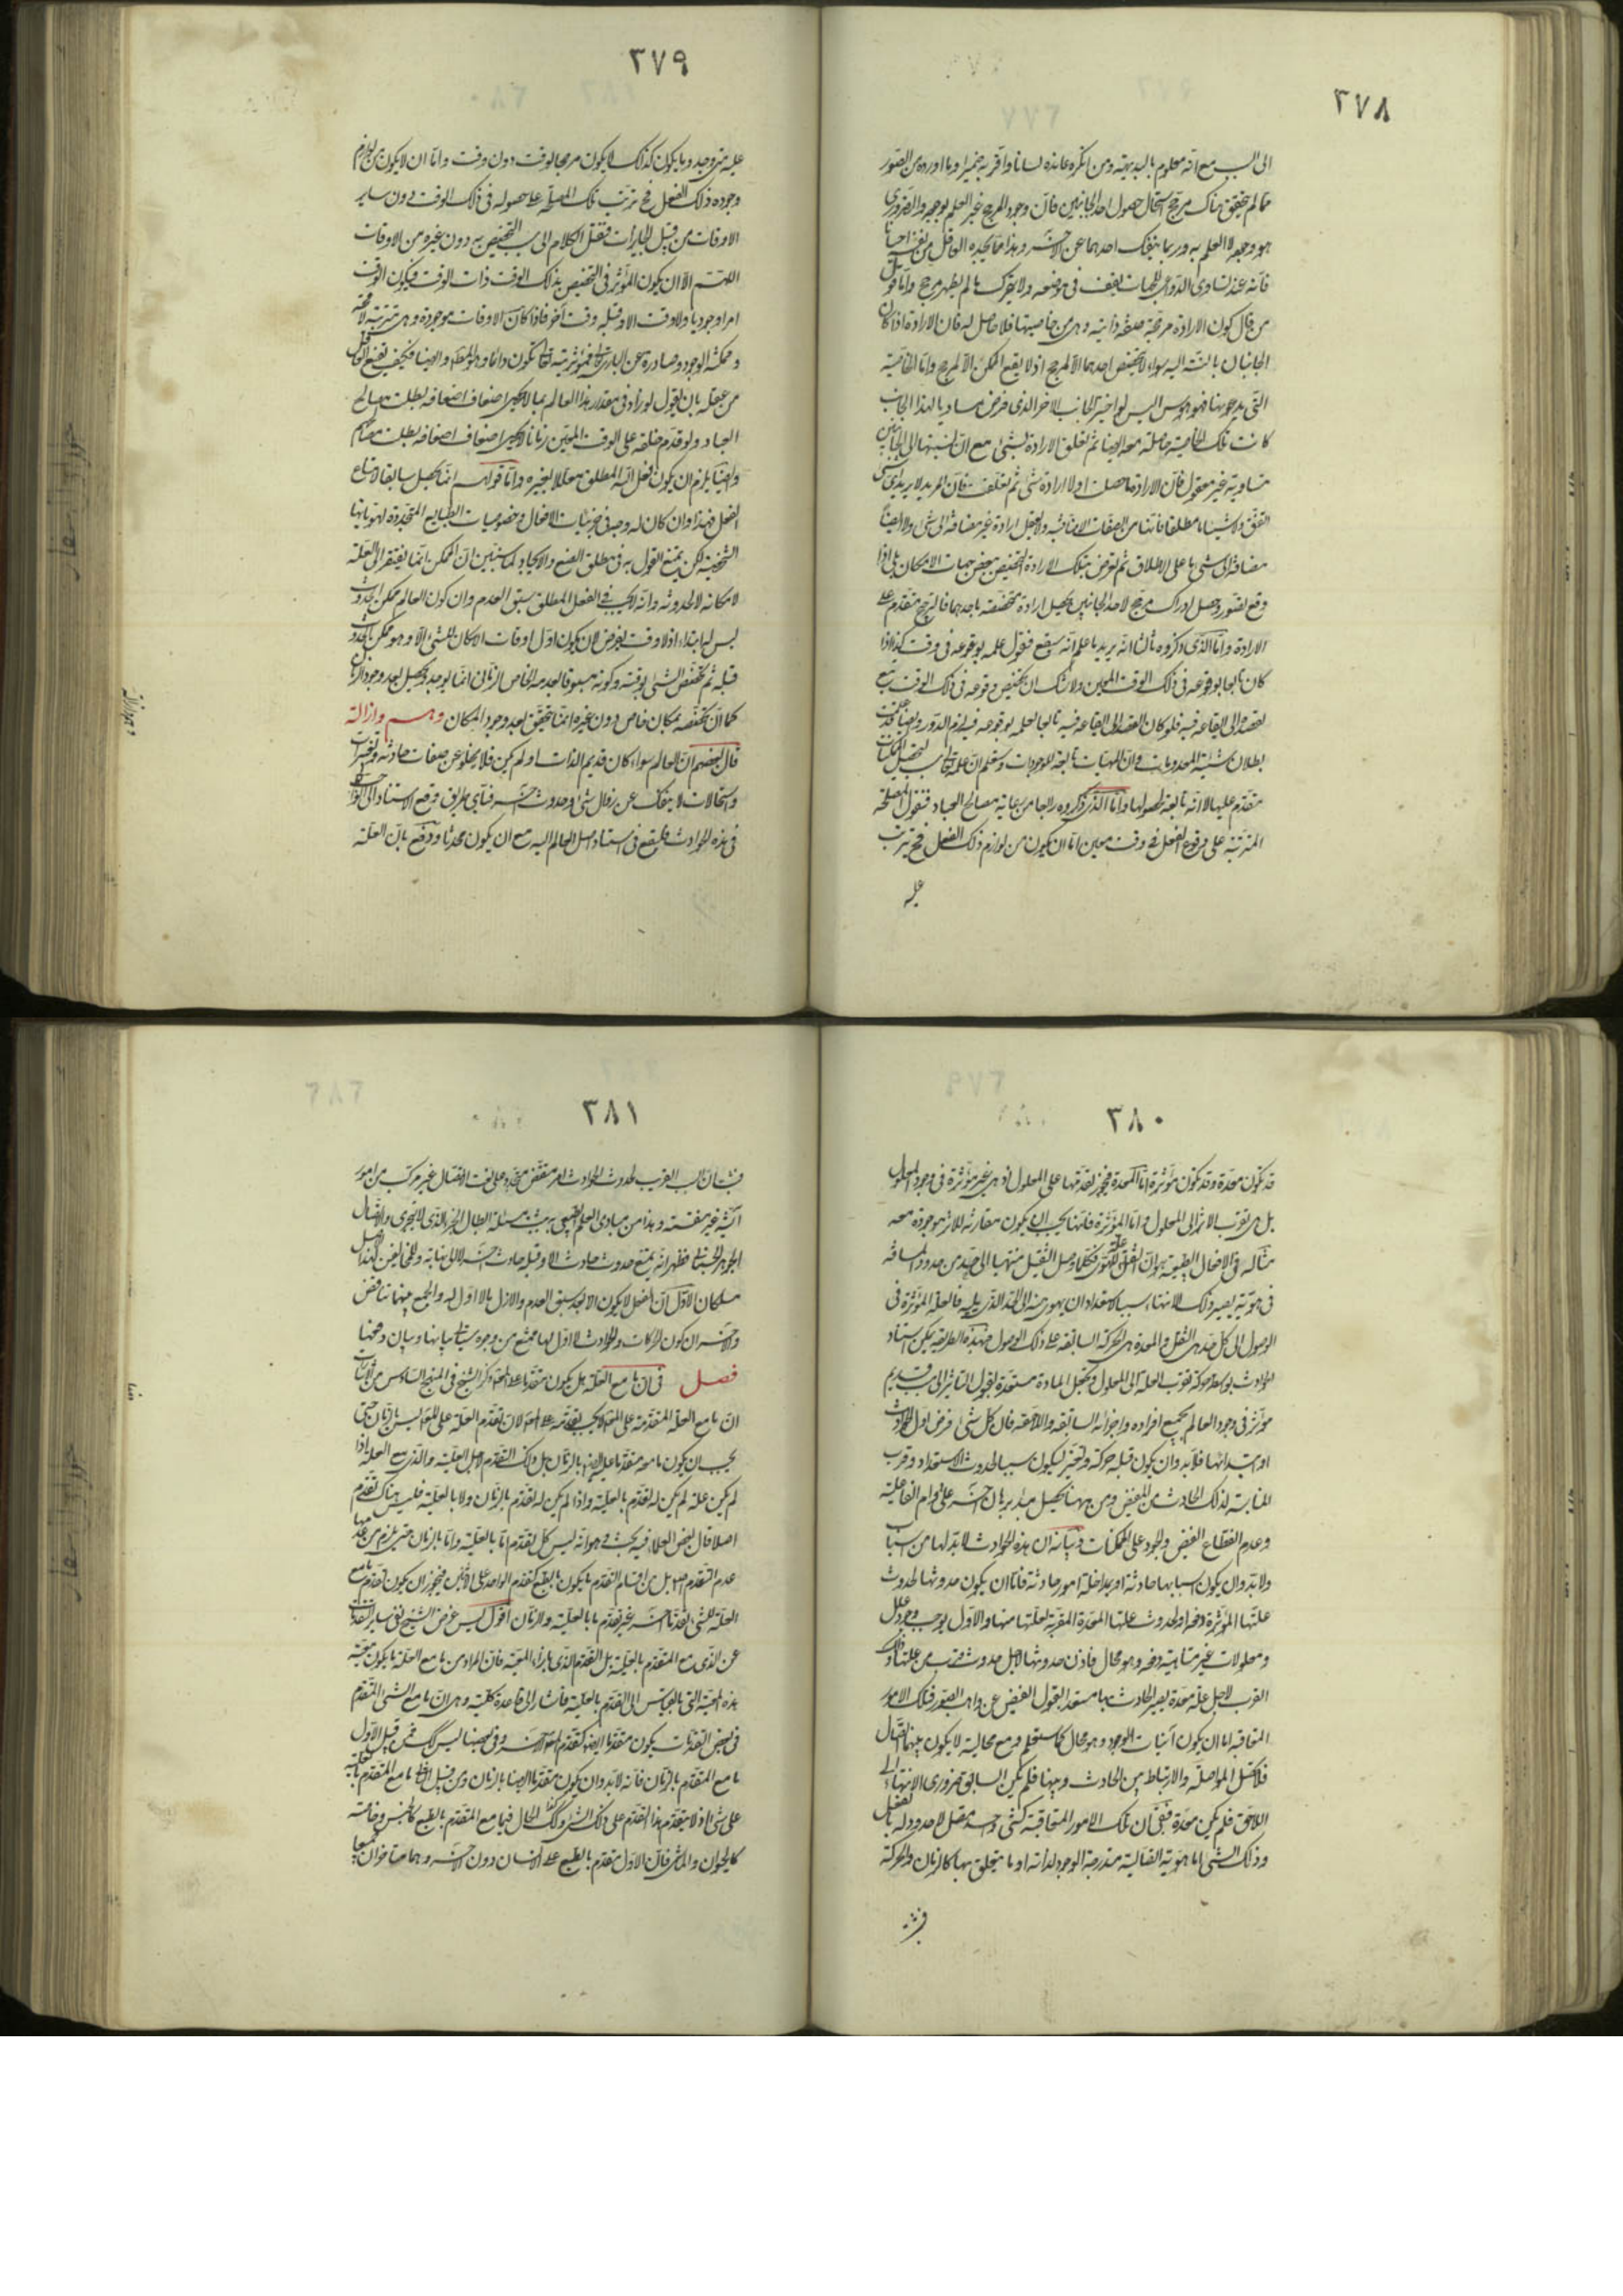 ٣٧٨
الى السبب مع انه معلوم بالبديهة ومن انكره عانده لسانا واقر به ضميرا وما اورده من الصور
مما لم يتحقق هناك مرجح استحال حصول احد الجانبين فان وجود المرجح غير العلم بوجوده والضروري
هو وجوده لا العلم به وربما ينفك احدهما عن الآخر وهذا مما يجده العاقل من نفسه احيانا
فانه عند تساوى الدواعى للجهات يقف في موضعه ولا يتحرك ما لم يظهر مرجح واما قول
من قال كون الارادة مرجحة صفة ذاتية وهى من خاصيتها فلا حاصل له فان الارادة اذا كان
الجانبان بالنسبة اليه سواء لا يتخصص احدهما الا لمرجح اذ لا يقع الممكن الا لمرجح واما الخاصية
التى يدعونها فهو هوس اليس لو اختير الجانب الآخر الذى فرض مساويا لهذا الجانب
كانت تلك الخاصية حاصلة معه ايضا ثم تعلق الارادة بشئ مع ان نسبتها الى الجانبين
متساوية غير معقول فان الارادة ما حصلت اولا ارادة شئ ثم تعلقت فان المريد لا يريد اى شئ
اتفق ولا شيئا ما مطلقا فانها من الصفات الاضافية ولا يعقل ارادة غير مضافة الى شئ ولا ايضا
مضافة الى شئ ما على الاطلاق ثم تعرض بتلك الارادة التخصيص ببعض جهات الامكان بلى اذا
وقع تصور وحصل ادراك مرجح لاحد الجانبين يحصل ارادة متخصصة باحدهما فالترجح متقدم على
الارادة واما الذى ذكروه ثالثا انه يريد ما علم انه سيقع فنقول علمه بوقوعه في وقت كذا اذا
كان تابعا بوقوعه في ذلك الوقت المعين ولا شك ان تخصص وقوعه في ذلك الوقت يتبع
لقصده الى ايقاعه فيه فلو كان القصد الى ايقاعه فيه تابعا لعلمه بوقوعه فيه لزم الدور وايضا قد علمت
بطلان شيئية المعدومات وان الماهيات تابعة للموجودات وستعلم ان علمه تعالى سبب لتحصيل الممكنات
متقدم عليها لا انه تابعة لحصولها واما الذى ذكروه رابعا من رعاية مصالح العباد فنقول المصلحة
المترتبة على وقوع الفعل في وقت معين اما ان يكون من لوازم ذلك الفعل فح يترتب
عليه
٣٧٩
عليه متى وجد وما يكون كذلك لا يكون مرجحا لوقت دون وقت واما ان لا يكون من لوازم
وجوده ذلك الفعل فح ترتب تلك المصلحة على حصوله في ذلك الوقت دون ساير
الاوقات من قبيل الجايزات فنقل الكلام الى سبب التخصيص به دون غيره من الاوقات
اللهم الا ان يكون المؤثر في التخصيص بذلك الوقت ذات الوقت فيكون الوقت
امرا وجوديا ولا وقت الا وقبله وقت آخر فاذا كانت الاوقات موجودة وهى مترتبة لا محة
وممكنة الوجود وصادرة عن البارى تعالى فمؤثريته تعالى تكون دائما وهو المط وايضا فكيف يقنع العاقل
من عقله بان يقول لو زاد في مقدار هذا العالم بما لا يحصى اضعاف اضعافه بطلت مصالح
العباد ولو قدم خلقه على الوقت المعين زمانا لا يحصى اضعاف اضعافه بطلت مصالحهم
وايضا يلزم ان يكون فعل الله المطلق معللا بغيره واما قولهم انما يحصل سابقا لامتناع
الفعل فهذا وان كان له وجه في جزئيات الافعال وخصوصيات الطبايع المتجددة لهوياتها
الشخصية لكن يمتنع القول به في مطلق الصنع والايجاد لما سنبين ان الممكن انما يفتقر الى العلة
لامكانه لا لحدوثه وانه لا يجب في الفعل المطلق سبق العدم وان كون العالم ممكن الحدوث
ليس له ابتداء اذ لا وقت يفرض لان يكون اول اوقات الامكان للشئ الا وهو ممكن الحدوث
قبله ثم تخصص الشئ بوقته وكونه مسبوقا بعدمه الخاص الزمانى انما يوجد ويحصل بعد وجود الزمان
كما ان تخصصه بمكان خاص دون غيره انما يتحقق بعد وجود المكان وهم وازالة
قال بعضهم ان العالم سواء كان قديم الذات او لم يكن فلا يخلو عن صفات حادثة وتغيرات
واستحالات لا ينفك عن زوال شئ وحدوث آخر فباى طريق وقع الاستناد الى الواجب
في هذه الحوادث فليقع في استناد اصل العالم اليه مع ان يكون محدثا ودفع بان العلة
٣٨٠
قد تكون معدة وقد تكون مؤثرة اما المعدة فيجوز تقدمها على المعلول اذ هى غير مؤثرة في وجود المعلول
بل هى تقرب الاثر الى المعلول واما المؤثرة فانها يجب ان يكون مقارنة للاثر موجودة معه
مثاله في الافعال الطبيعية هو ان الثقل علة للهوى فكلما وصل الثقيل منتهيا الى حد من حدود المسافة
في هويته يصير ذلك الانتهاء سببا لاستعداد ان يهوى منه الى الحد الذى يليه فالعلة المؤثرة في
الوصول الى كل حد هى الثقل والمعدة هى الحركة السابقة على ذلك الوصول فبهذه الطريقة يمكن استناد
الحوادث بواسطة حركة تقرب العلة الى المعلول وتجعل المادة مستعدة لقبول التاثير الى سبب قديم
مؤثر في وجود العالم بجميع افراده واجزائه السابقة واللاحقة فان كل شئ فرض اول الحوادث
او مبتدائها فلابد وان يكون قبله حركة وتغير ليكون سببا لحدوث الاستعداد وقرب
المناسبة لذلك الحادث من المفيض ومن ههنا يحصل مبدء برهان آخر على دوام الفاعلية
وعدم انقطاع الفيض والجود على الممكنات وبيانه ان هذه الحوادث لابد لها من اسباب
ولابد وان يكون اسبابها حادثة او بداخلة امور حادثة فاما ان يكون حدوثها لحدوث
علتها المؤثرة دفعة او لحدوث علتها المعدة المقربة لعلتها منها والاول يوجب وجود علل
ومعلولات غير متناهية دفعة وهو محال فاذن حدوثها لاجل حدوث قرب من علتها وذلك
القرب لاجل علة معدة يصير الحادث بها مستعدا لقبول الفيض عن واهب الصور فتلك الامور
المتعاقبة اما ان يكون آنيات الوجود وهو محال كما ستعلم ومع محاليته لا يكون بينها اتصال
فلا تحصل المواصلة والارتباط بين الحادث وبينها فلم يكن السابق ضرورى الانتهاء الى
اللاحق فلم يكن معدة فبقى ان تلك الامور المتعاقبة كشئ واحد متصل لا حدود له بالفعل
وذلك الشئ اما هوية اتصالية متدرجة الوجود لذاته او ما يتعلق بها كالزمان والحركة
فثبت
٣٨١
فثبت ان السبب القريب لحدوث الحوادث امر متقض متجدد على نعت الاتصال غير مركب من امور
آنية غير منقسمة وهذا من مبادى العلم الطبيعى يبتنى منه مسئلة ابطال الجزء الذى لا يتجزى واتصال
الجوهر الجسمانى فظهر انه يمتنع حدوث حادث الا وقبله حادث آخر لا الى نهاية وللمخالفين لهذا الاصل
مسلكان الاول ان الفعل لا يكون الا بعد سبق العدم والازل ما لا اول له والجمع بينهما تناقض
والآخر ان كون الحركات والحوادث لا اول لها ممتنع من وجوه سياتى بيانها وبيان دفعها
فصل في ان ما مع العلة هل يكون متقدما على المعلول ذكر الشيخ في النهج السادس من الاشارات
ان ما مع العلة المتقدمة على المعلول لا يجب تقدمه على المعلول لان تقدم العلة على المعلول ليس بالزمان حتى
يجب ان يكون ما معه متقدما عليه ايضا بالزمان بل ذلك التقدم لاجل العلية والذى مع العلة اذا
لم يكن علة لم يكن له تقدم بالعلية واذا لم يكن له تقدم بالزمان ولا بالعلية فليس هناك تقدم
اصلا قال بعض العلماء فيه بحث وهو انه ليس كل تقدم اما بالعلية واما بالزمان حتى يلزم من عدمهما
عدم التقدم اصلا بل من اقسام التقدم ما يكون بالطبع كتقدم الواحد على الاثنين فيجوز ان يكون تقدم ما مع
العلة للشئ تقدما آخر غير تقدم ما بالعلية والزمان اقول ليس غرض الشيخ نفى ساير التقدمات
عن الذى مع المتقدم بالعلية بل التقدم الذى بازاء المعية فان المراد من ما مع العلة ما يكون معيته
هذه المعية التى بالقياس الى التقدم بالعلية فاشار الى قاعدة كلية وهى ان ما مع الشئ المتقدم
في بعض التقدمات يكون متقدما ايضا كتقدم آخر وفى بعضها ليس كك فمن قبيل الاول
ما مع المتقدم بالزمان فانه لابد وان يكون متقدما ايضا بالزمان ومن قبيل الثانى ما مع المتقدم بالعلية
على شئ اذ لا يتقدم هذا التقدم على ذلك الشئ وكذلك الحال فيما مع المتقدم بالطبع كالجنس وخاصته
كالحيوان والماشى فان الاول متقدم بالطبع على الانسان دون الآخر وهما متاخران جميعا